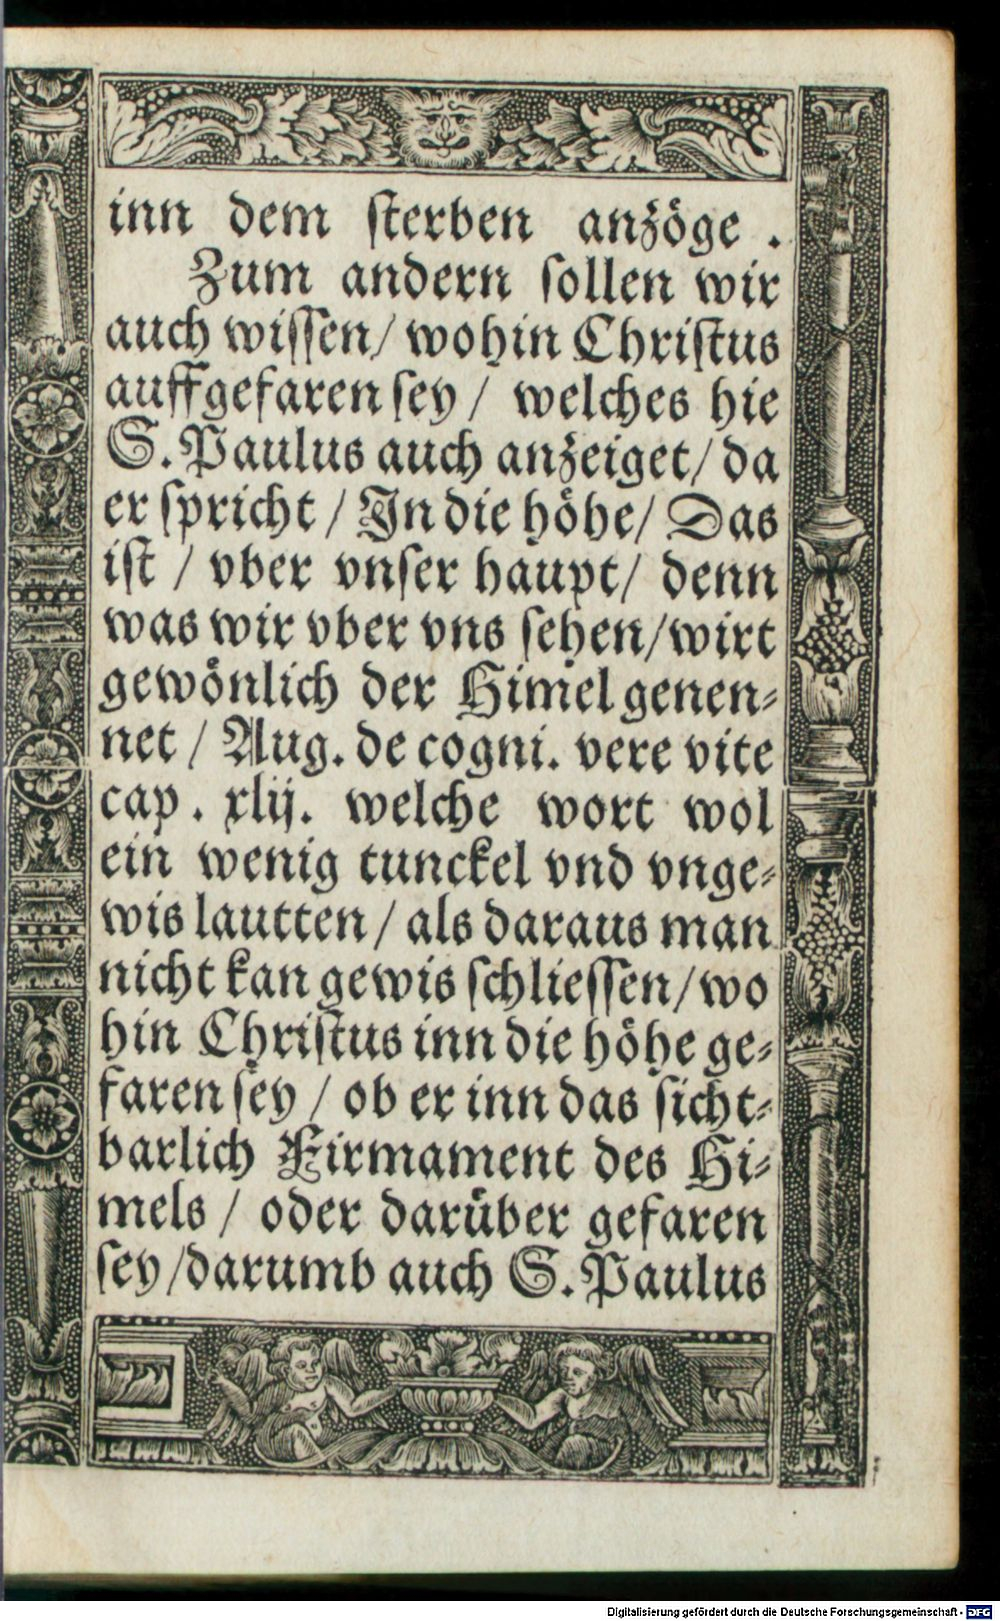 inn dem sterben anzöge .
Zum andern sollen wir
auch wissen/ wohin Christus
auffgefaren sey / welches hie
S. Paulus auch anzeiget/ da
er spricht / In die höhe/ Das
ist / vber vnser haupt/ denn
was wir vber vns sehen/wirt
gewönlich der Himel genen-
net / Aug. de cogni. vere vite
cap . xlij. welche wort wol
ein wenig tunckel vnd vnge-
wis lautten / als daraus man
nicht kan gewis schliessen/wo
hin Christus inn die höhe ge-
faren sey / ob er inn das sicht-
barlich Firmament des Hi-
mels / oder darüber gefaren
sey /darumb auch S. Paulus
Digitalisierung gefördert durch die Deutsche Forschungsgemeinschaft - DFG